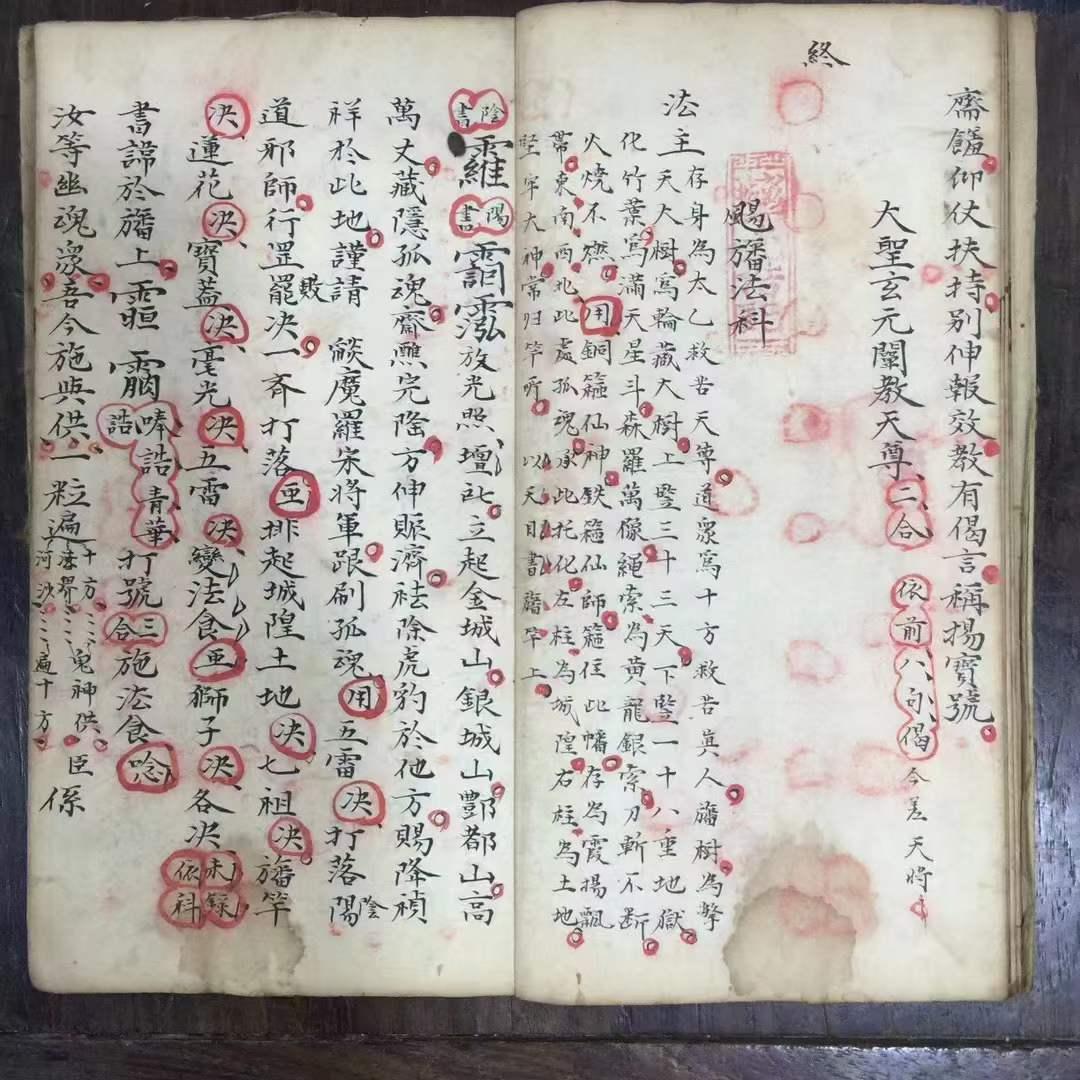 終
齋饈仰仗扶持别伸報效教有偈言稱揚寶號
大聖玄元闡教天尊二合依前八句偈今差天將
颺旛法科
法主存身為太乙救苦天尊道眾為十方救苦真人旛樹為擎
天大樹為輪藏大樹上豎三十三天下豎一十八重地獄
化竹葉為滿天星斗森羅萬像繩索為黄龍銀索刀斬不断
火燒不燃用銅箍仙神鉄箍仙師箍住此幡存為霞揚飄
帶東南西北此處孤魂承此托化左柱為城隍右柱為土地
堅牢大神常归竿所以天目書旛竿上
陰書 陽書 放光照壇所立起金城山銀城山酆都山高
萬丈藏隱孤魂齋醮完隆方伸賑濟祛除虎豹於他方賜降禎
祥於此地謹請 魔羅宋將軍跟刷孤魂用五雷决打落陽陰
道邪師行罡罷敗决一斉打落亜排起城隍土地决七祖决旛竿
决蓮花决寶蓋决毫光决五雷决變法食亜獅子决各决未録依科
書諱於旛上 唪誥誥青華打號三合施法食唸
汝等幽魂眾吾今施與供一粒遍十方河沙界鬼神供遍十方臣係